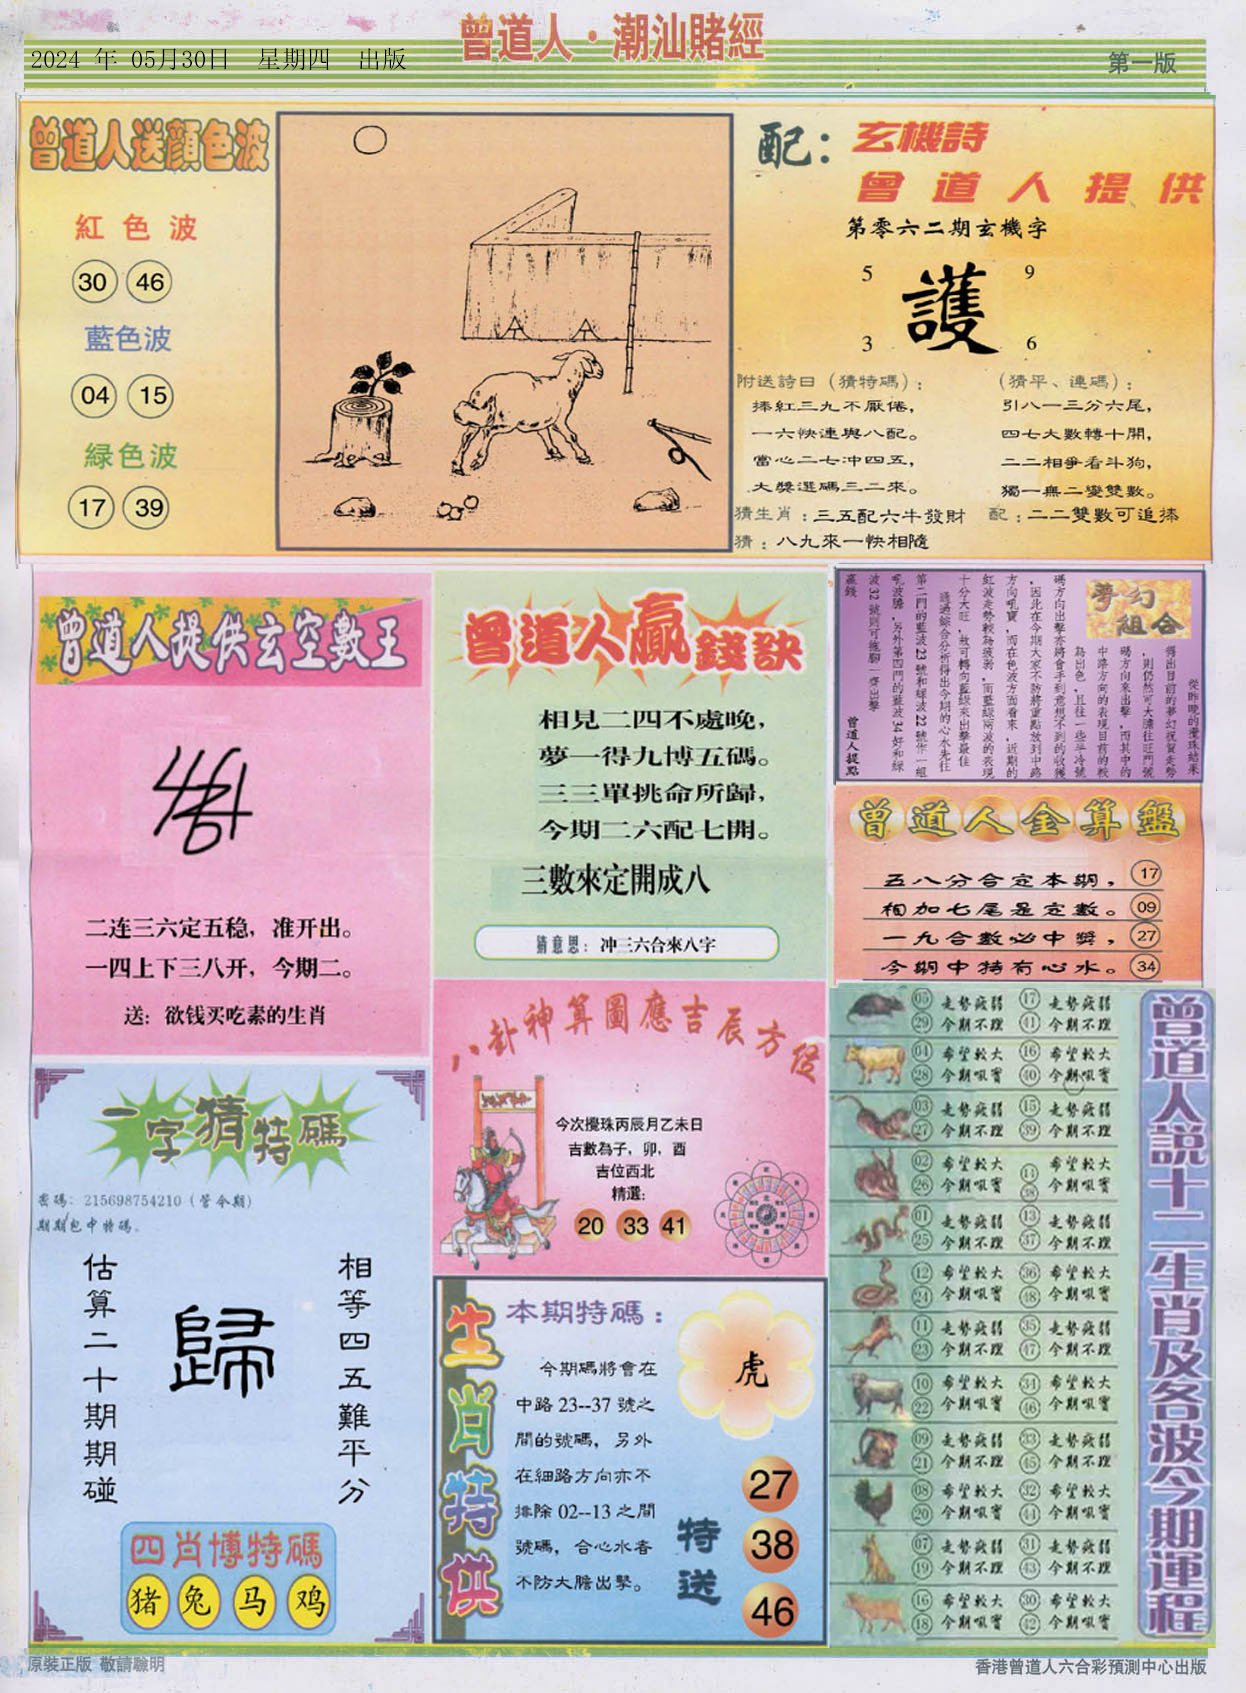 曾道人·潮汕賭經
2024 年 05月30日 星期四 出版
第一版
曾道人送顏色波
紅色波
30 46
藍色波
04 15
緑色波
17 39
配：
玄機詩
曾道人提供
第零六二期玄機字
5 9
護
3 6
附送詩曰（猜特碼）：
捧紅三九不厭倦，
一六快連與八配。
當心二七冲四五，
大獎選碼三二來。
猜生肖：三五配六牛發財
猜：八九來一快相隨
（猜平、連碼）：
引八一三分六尾，
四七大數轉十開，
二二相爭看斗狗，
獨一無二變雙數。
配：二二雙數可追捧
曾道人提供玄空數王
二连三六定五稳，准开出。
一四上下三八开，今期二。
送：欲钱买吃素的生肖
曾道人贏錢訣
相見二四不處晚，
夢一得九博五碼。
三三單挑命所歸，
今期二六配七開。
三數來定開成八
猜意思：冲三六合來八字
夢幻組合
從昨晚的攪珠結果
得出目前的夢幻祝賀走勢
，則仍然可大膽往旺門號
碼方向來出擊，而其中的
中路方向的表現目前的較
為出色，且往一些平冷號
碼方向出擊亦將會手到意想不到的收獲
，因此在今期大家不防將重點放到中路
方向吼寶，而在色波方面看來，近期的
紅波走勢較為疲弱，而藍綠兩波的表現
十分大旺，故可轉向藍綠來出擊最佳
通過綜合分析得出今期的心水先往
第二門的藍波23號和綠波22號作一組
吼波膽，另外第四門的藍波34好和綠
波32號則可拖腳一齊出擊
贏錢
曾道人提點
曾道人金算盤
五八分合定本期， 17
相加七尾是定數。 09
一九合數必中獎， 27
今期中特有心水。 34
一字猜特碼
密碼：215698754210（管今期）
期期包中特碼。
估算二十期期碰
歸
相等四五難平分
四肖博特碼
猪 兔 马 鸡
八卦神算圖應吉辰方位
今次攪珠丙辰月乙未日
吉數為子，卯，酉
吉位西北
精選：
20 33 41
生肖特供
本期特碼：
今期碼將會在
中路23--37號之
間的號碼，另外
在細路方向亦不
排除02--13之間
號碼，合心水者
不防大膽出擊。
虎
特送
27
38
46
曾道人說十二生肖及各波今期運程
05 走勢疲弱 17 走勢疲弱
29 今期不理 41 今期不理
04 希望較大 16 希望較大
28 今期吼實 40 今期吼實
03 走勢疲弱 15 走勢疲弱
27 今期不理 39 今期不理
02 希望較大 14 希望較大
26 今期吼實 38 今期吼實
01 走勢疲弱 13 走勢疲弱
25 今期不理 37 今期不理
12 希望較大 36 希望較大
24 今期吼實 48 今期吼實
11 走勢疲弱 35 走勢疲弱
23 今期不理 47 今期不理
10 希望較大 34 希望較大
22 今期吼實 46 今期吼實
09 走勢疲弱 33 走勢疲弱
21 今期不理 45 今期不理
08 希望較大 32 希望較大
20 今期吼實 44 今期吼實
07 走勢疲弱 31 走勢疲弱
19 今期不理 43 今期不理
16 希望較大 30 希望較大
18 今期吼實 42 今期吼實
原裝正版 敬請聰明
香港曾道人六合彩預測中心出版